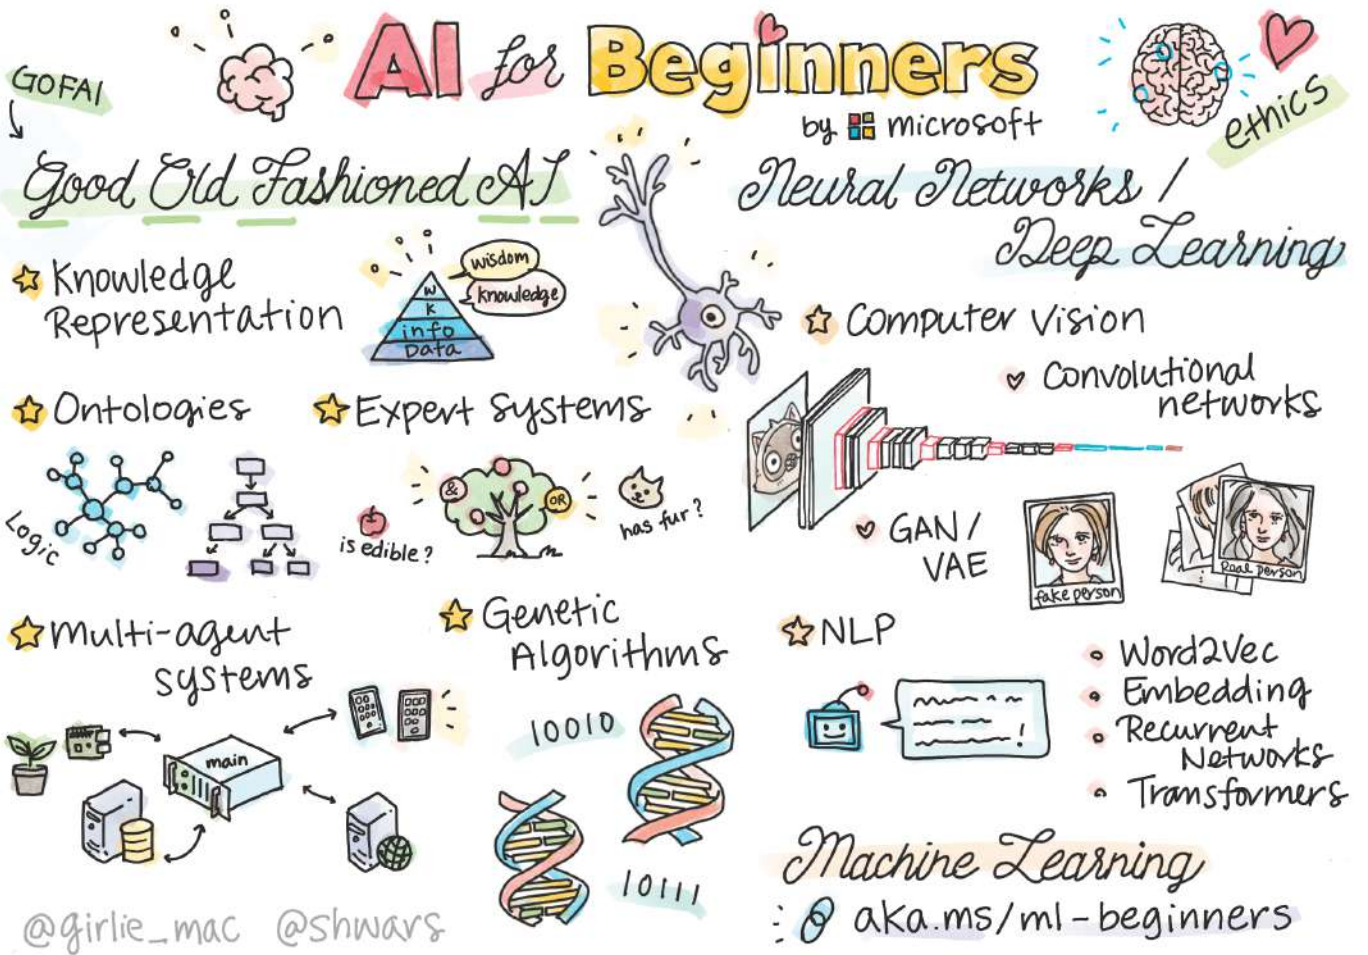 AI for Beginners
by microsoft
GOFAI
ethics
Good Old Fashioned AI
Knowledge
Representation
wisdom
knowledge
W
K
info
Data
Ontologies
Logic
Expert Systems
&
OR
is edible?
has fur?
Multi-agent
systems
main
Genetic
Algorithms
10010
10111
Neural Networks /
Deep Learning
Computer Vision
Convolutional
networks
GAN /
VAE
fake person
Real person
NLP
!
Word2Vec
Embedding
Recurrent
Networks
Transformers
Machine Learning
aka.ms/ml-beginners
@girlie_mac @shwars